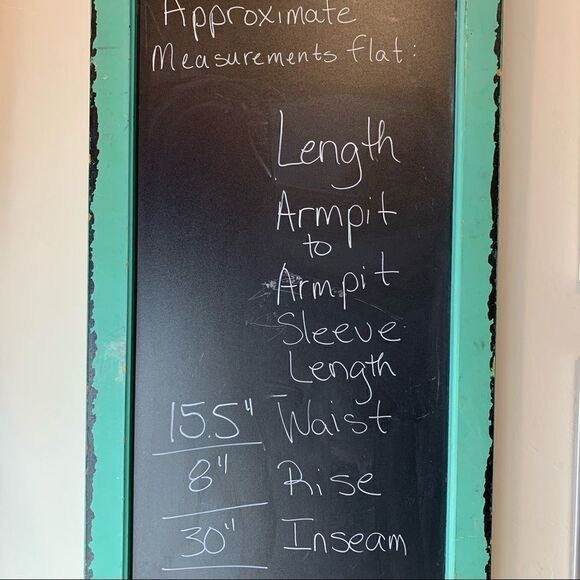 Approximate
Measurements flat:
Length
Armpit
to
Armpit
Sleeve
Length
15.5" Waist
8" Rise
30" Inseam